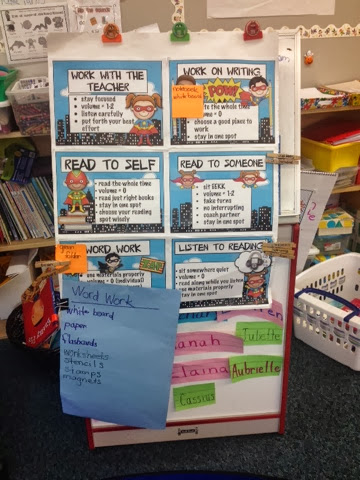 WORK WITH THE
TEACHER
• stay focused
• volume = 1-2
• listen carefully
• put forth your best
effort
WORK ON WRITING
POW!
the whole time
• volume = 0
• choose a good place to
work
• stay in one spot
READ TO SELF
• read the whole time
• volume = 0
• read just right books
• stay in one spot
• choose your reading
spot wisely
READ TO SOMEONE
• sit EEKK
• volume = 1-2
• take turns
• no interrupting
• coach partner
• stay in one spot
WORD WORK
use materials properly
volume = 0 (individual)
LISTEN TO READING
• sit somewhere quiet
• volume = 0
• read along while you listen
• use materials properly
• stay in one spot
Word Work
white board
paper
flashcards
worksheets
stencils
stamps
magnets
Juliette
Elaina
Aubrielle
Cassius